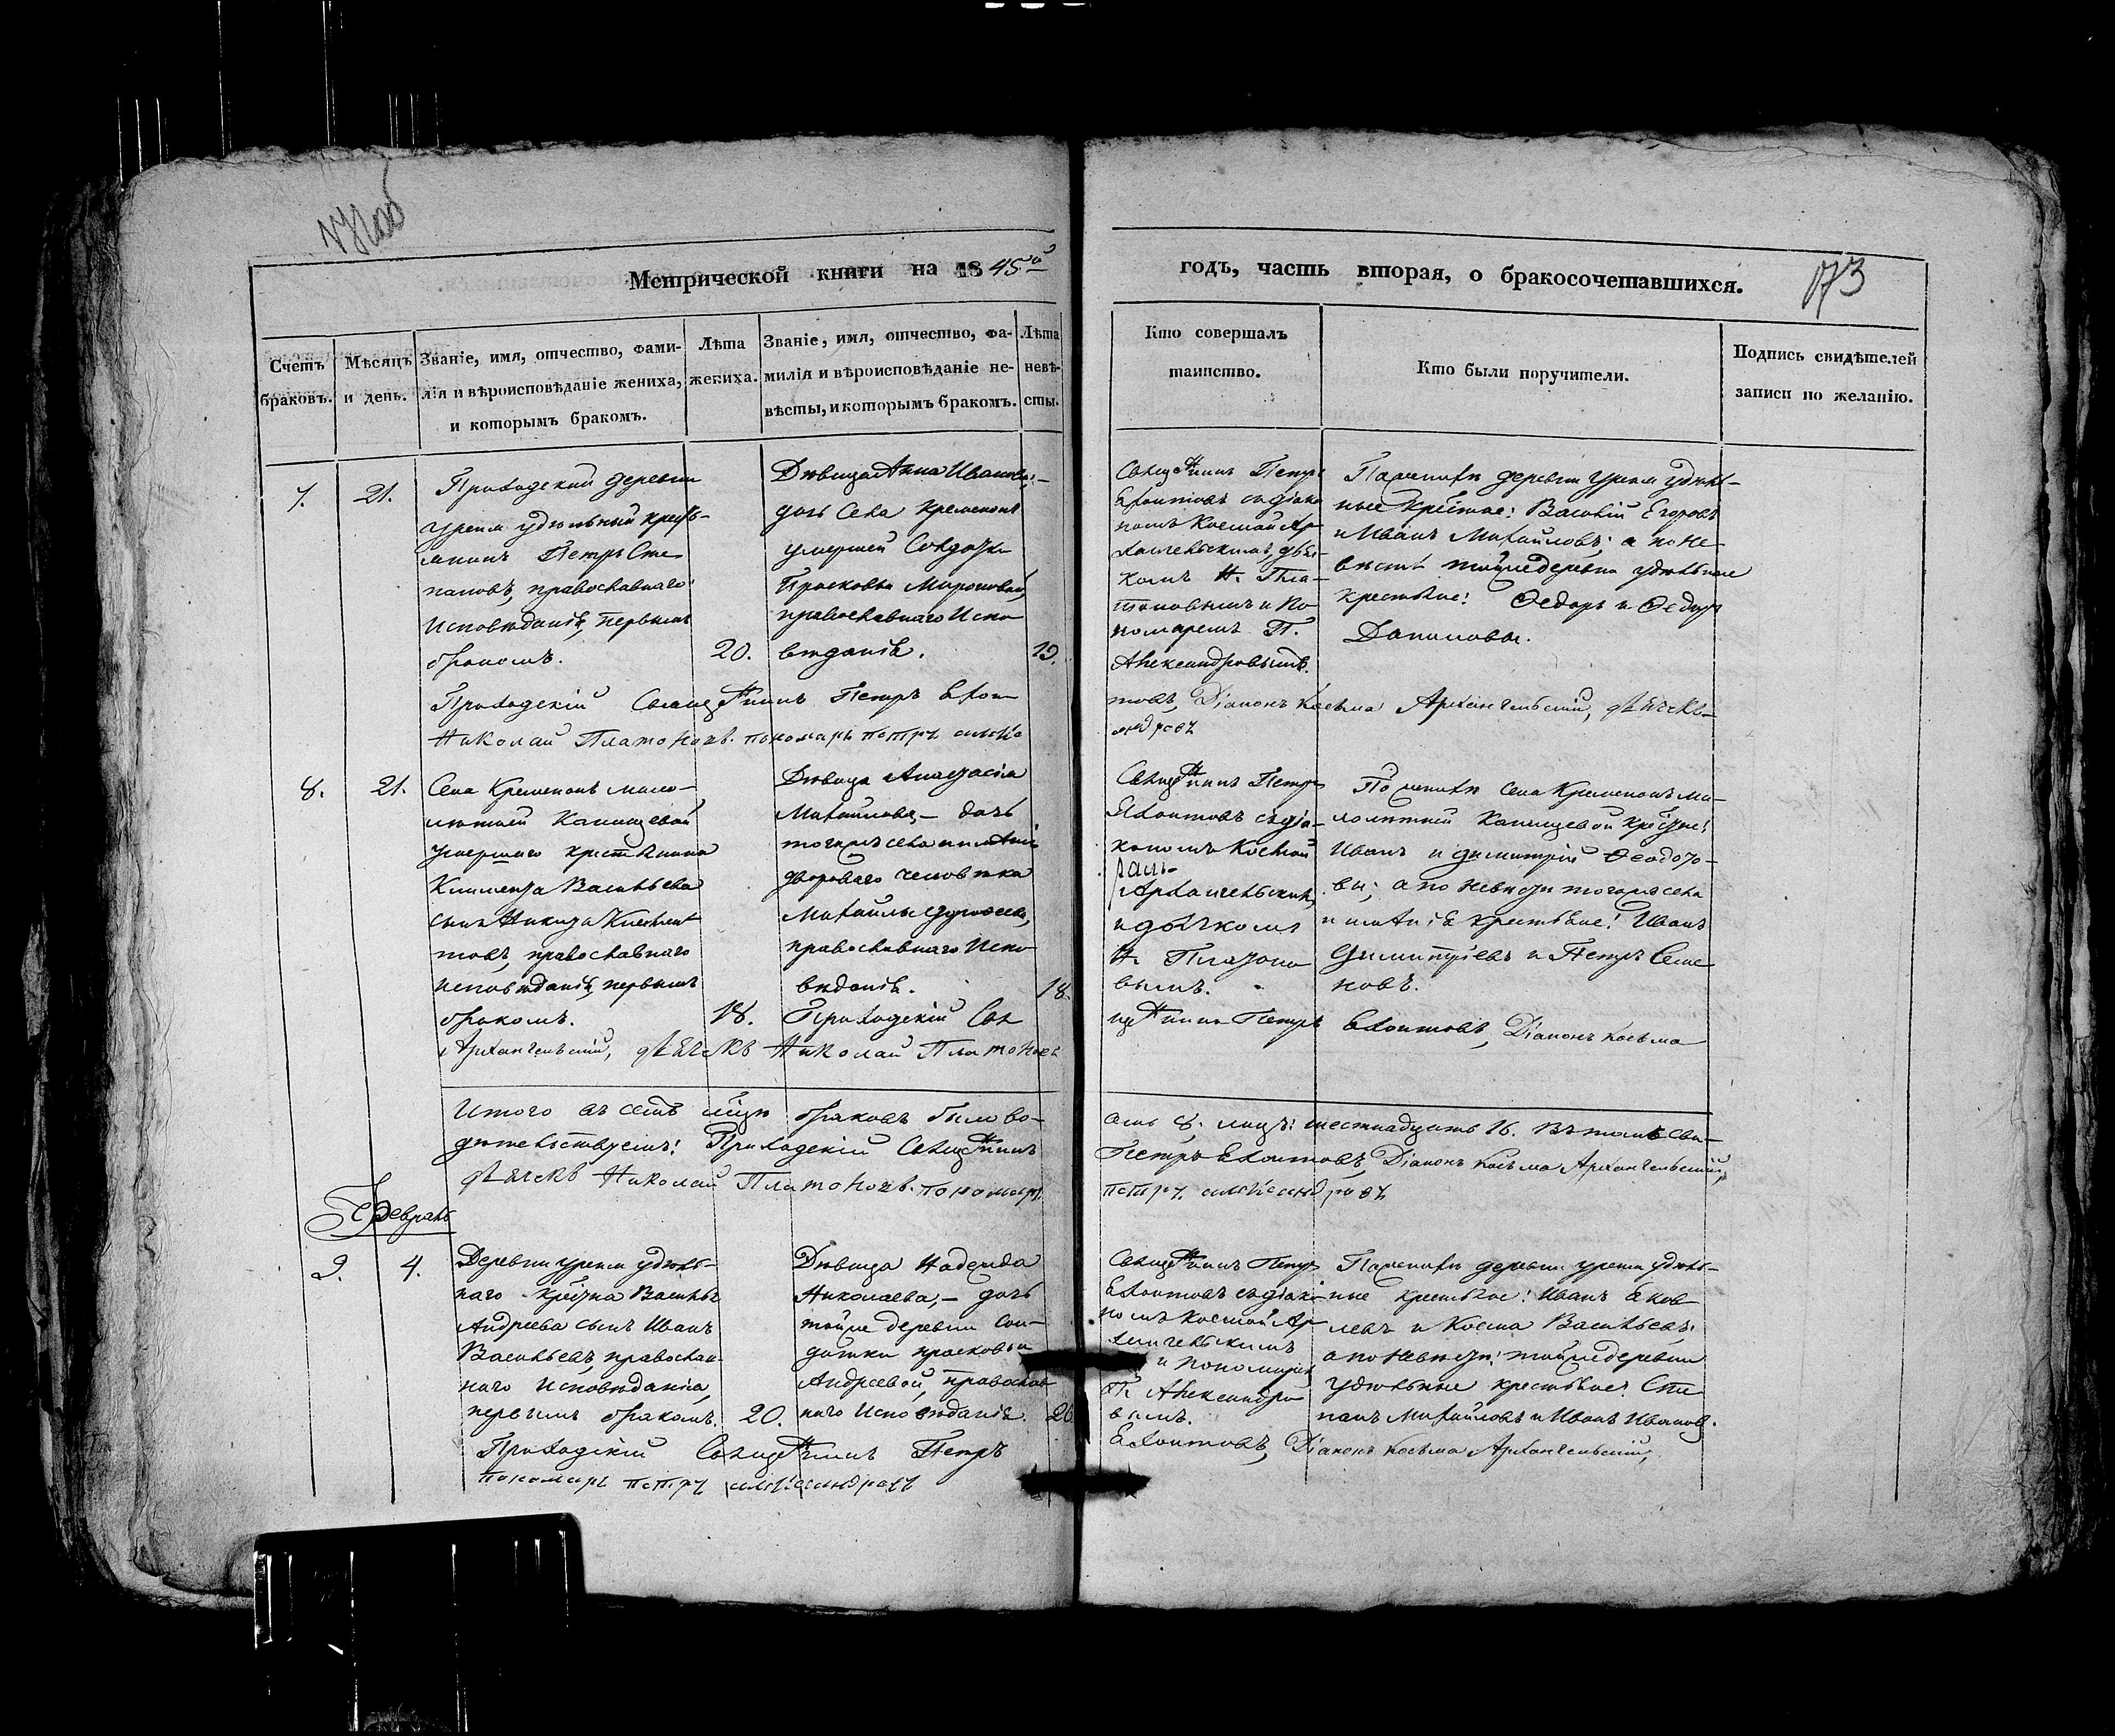 Метрической книги на 1845й
годъ, часть вторая, о бракосочетавшихся.
173
Счетъ браковъ.
Мѣсяцъ и день.
Званіе, имя, отчество, фами-
лія и вѣроисповѣданіе жениха,
и которымъ бракомъ.
Лѣта
жениха.
Званіе, имя, отчество, фа-
милія и вѣроисповѣданіе не-
вѣсты, и которымъ бракомъ.
Лѣта
невѣ-
сты.
Кто совершалъ
таинство.
Кто были поручители.
Подпись свидѣтелей
записи по желанію.
7.
21.
Приходской деревни
удѣльный кресть-
янинъ Петръ Сте
пановъ, православнаго
исповѣданія, первымъ
бракомъ.
20.
Дѣвица Анна Иванова, –
дочь села Кременокъ
умершей Солдатки
Прасковьи Мироновой,
православнаго Испо
вѣданія.
19.
Священникъ Петръ
Ехоитовъ съ діако
номъ Космой Ар
хангельскимъ, дья-
комъ Н. Пла-
тоновымъ и По
номаремъ П.
Александровымъ.
деревни удѣль-
ные Крестьяне: Василій Егоровъ
и Иванъ Михайловъ; а по Не-
вѣстѣ тойже деревни удѣльные
крестьяне: Ѳедоръ и Ѳедоръ
Приходскій Священникъ Петръ
Діаконъ Косьма Архангельскій, дьячекъ
Николай Платоновъ. пономарь петръ александровъ
8.
21.
Села Кременокъ мало-
лѣтней
умершаго крестьянина
Климента Васильева
сынъ Никита Клемен
товъ, православнаго
исповѣданія, первымъ
бракомъ.
18.
Дѣвица Анастасія
Михайлова, – дочь
тогожъ села
двороваго человѣка
Михайлы
православнаго Испо
вѣданія.
18.
Священникъ Петръ
съ діа-
кономъ Космой
Архангельскимъ
и дьячкомъ
Н. Платоно
вымъ.
По женихѣ села Кременокъ ма-
лолѣтней крестьяне:
Иванъ и Димитрій Ѳеодоро-
вы; а по невѣсте тогожъ села
крестьяне: Иванъ
Димитріевъ и Петръ Семе
новъ.
Приходскій Свя
щенникъ Петръ
Діаконъ Косьма
Архангельскій, дьячекъ Николай Платоновъ
Итого въ семъ мѣсяцѣ браковъ было во-
семь 8. лицъ: шестнадцать 16. Въ томъ сви-
дѣтельствуемъ: Приходскій Священникъ
Петръ Діаконъ Косьма Архангельскій,
дьячекъ Николай Платоновъ. пономарь
петръ александровъ
Февраль
9.
4.
Деревни удѣль-
наго Крестьянина Василья
Андреева сынъ Иванъ
Васильевъ, православ-
наго исповѣданія,
первымъ бракомъ.
20.
Дѣвица Надежда
Николаева, – дочь
тойже деревни Сол-
датки прасковьи
Андреевой, православ
наго исповѣданія
20
Священникъ Петръ
съ діако
номъ Космой Ар
хангельскимъ
и пономаремъ
П. Александро
вымъ.
деревни удѣль-
ные крестьяне: Иванъ Яков
левъ и Косма Васильевъ;
а по невѣсте: тойже деревни
удѣльные крестьяне: Сте
панъ Михайловъ и Иванъ Ивановъ.
Приходскій Священникъ Петръ
Діаконъ Косьма Архангельскій,
пономарь петръ александровъ